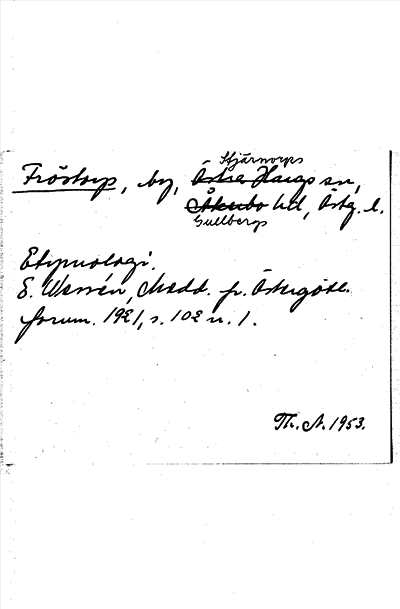 Stjärnorps
Fröstorp, by, Östra Hargs sn,
Åkerbo hd, Östg. l.
Gullbergs
Etymologi.
E. Wessén, Medd. fr. Östergötl.
forum. 1921, s. 102 n. 1.
Th. A. 1953.